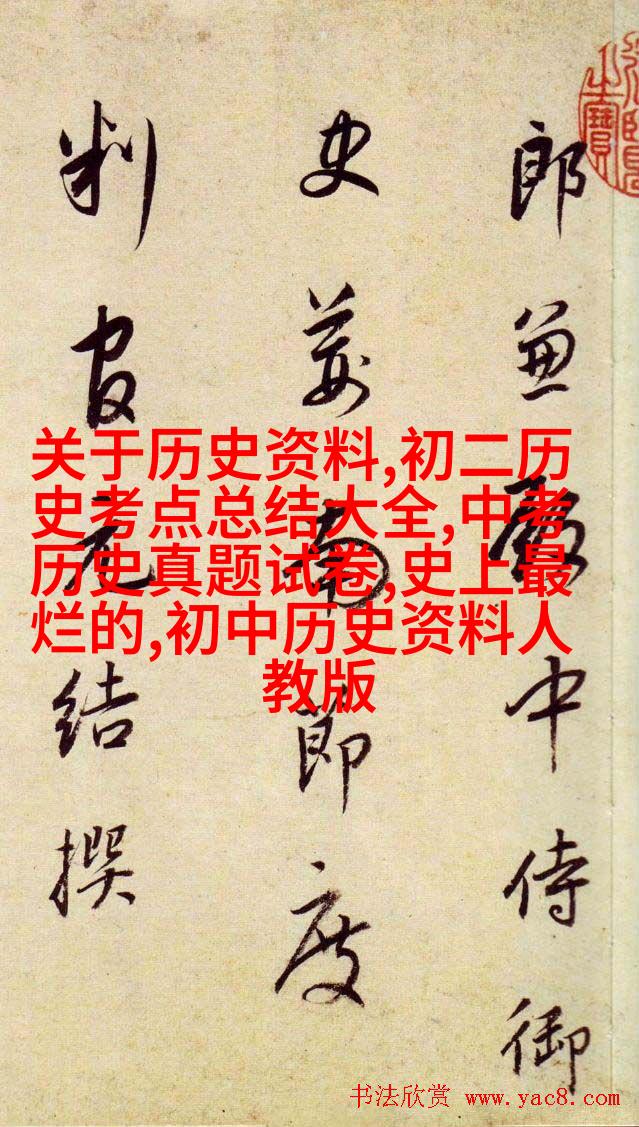 郎兼殿中侍御
史荊南節度
判官元結撰
关于历史资料,初二历
史考点总结大全,中考
历史真题试卷,史上最
烂的,初中历史资料人
教版
书法欣赏 www.yac8.com